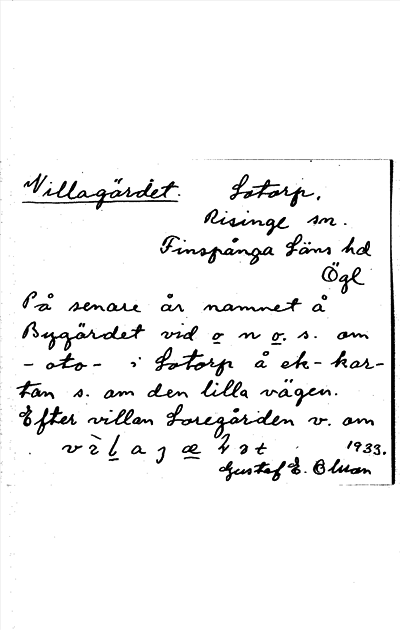 Villagärdet. Lotorp,
Risinge sn.
Finspånga Läns hd
Ögl
På senare år namnet å
Bygärdet vid o n o. s. om
- oto - i Lotorp å ek-kar-
tan s. om den lilla vägen.
Efter villan Loregården v. om
1933.
Gustaf E. Olsson